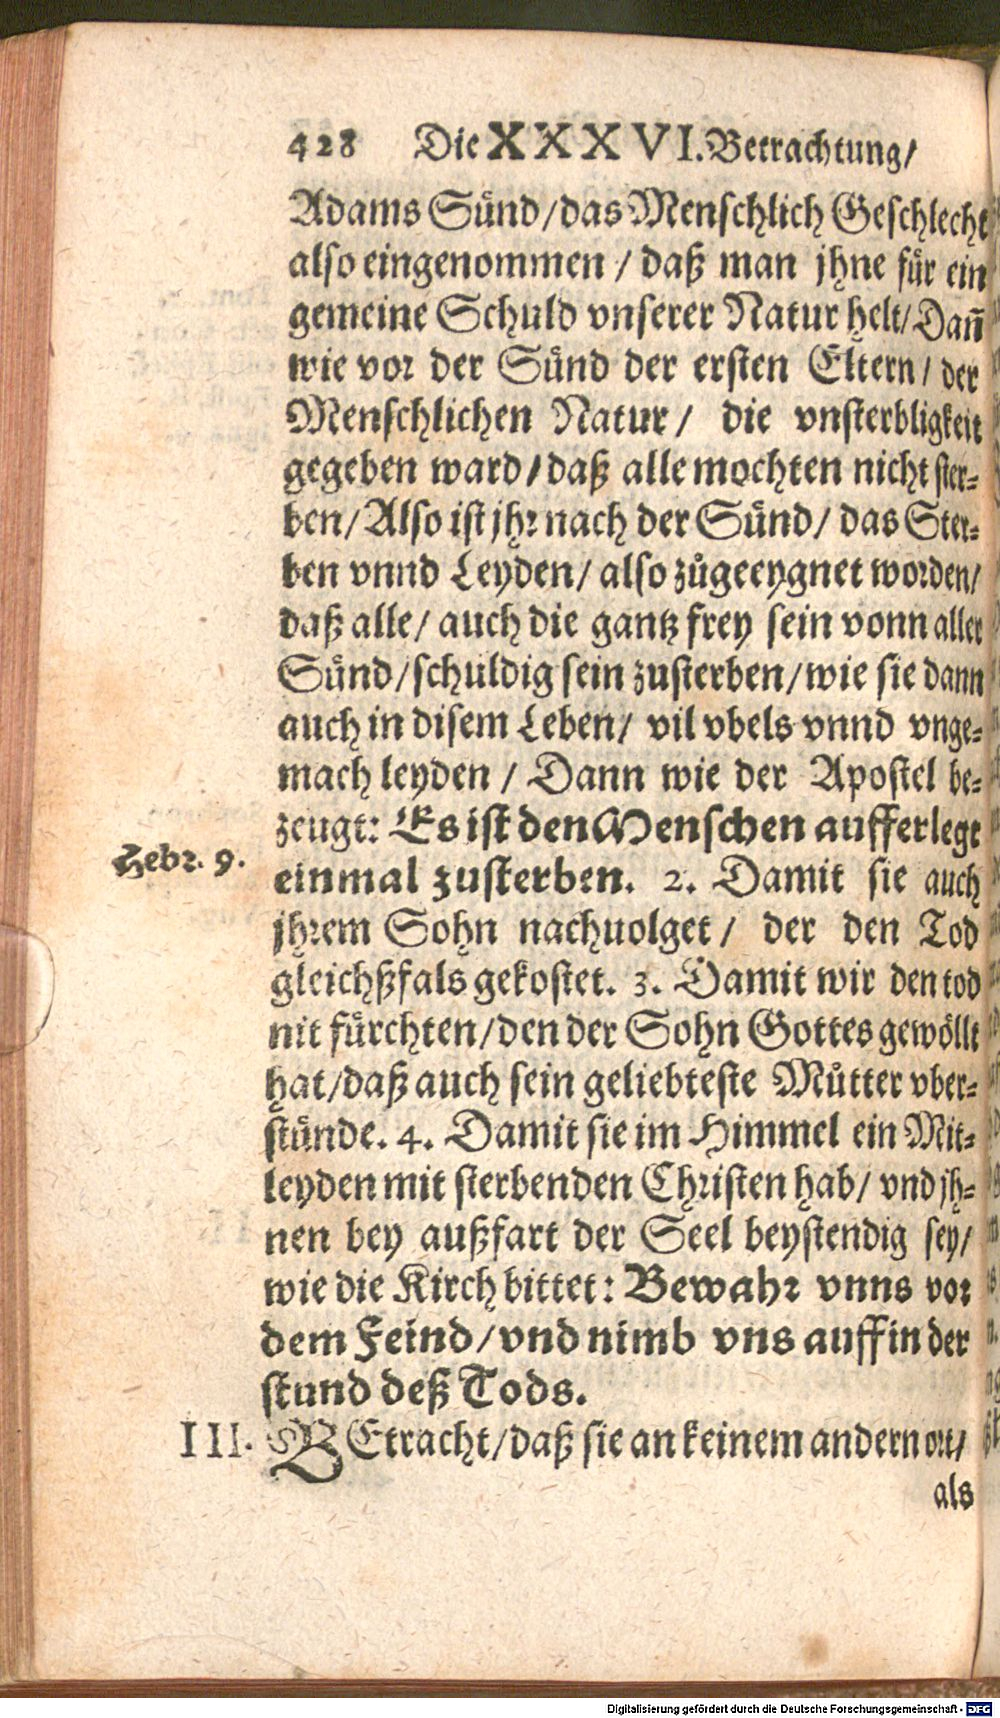 428 Die XXXVI. Betrachtung/
Adams Sünd/das Menschlich Geschlecht
also eingenommen / daß man jhne für ein
gemeine Schuld vnserer Natur helt/Dañ
wie vor der Sünd der ersten Eltern/ der
Menschlichen Natur/ die vnsterbligkeit
gegeben ward/daß alle mochten nicht ster-
ben/Also ist jhr nach der Sünd/ das Ster-
ben vnnd Leyden/ also zůgeeygnet worden/
daß alle/ auch die gantz frey sein vonn aller
Sünd/schuldig sein zusterben/wie sie dann
auch in disem Leben/ vil vbels vnnd vnge-
mach leyden / Dann wie der Apostel be-
zeugt: Es ist den Menschen aufferlegt
Hebr. 9.
einmal zusterben. 2. Damit sie auch
jhrem Sohn nachuolget/ der den Tod
gleichßfals gekostet. 3. Damit wir den tod
nit fürchten/den der Sohn Gottes gewöllt
hat/daß auch sein geliebteste Můtter vber-
stünde. 4. Damit sie im Himmel ein Mit-
leyden mit sterbenden Christen hab/ vnd jh-
nen bey außfart der Seel beystendig sey/
wie die Kirch bittet: Bewahr vnns vor
dem Feind/vnd nimb vns auff in der
stund deß Tods.
III. BEtracht/daß sie an keinem andern ort/
als
Digitalisierung gefördert durch die Deutsche Forschungsgemeinschaft - DFG